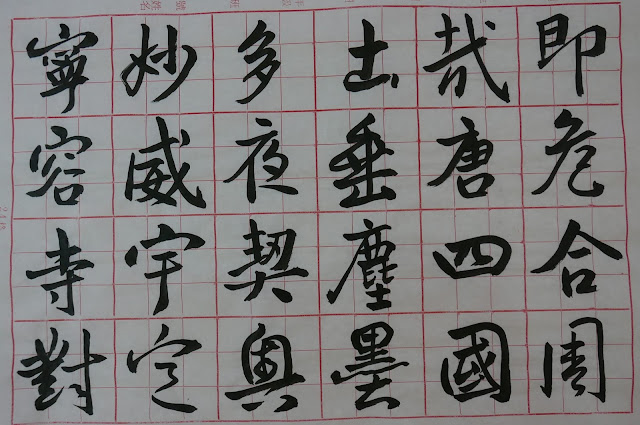 即危合周
哉唐四國
土垂塵墨
多夜契奧
妙威宇定
寧容寺對